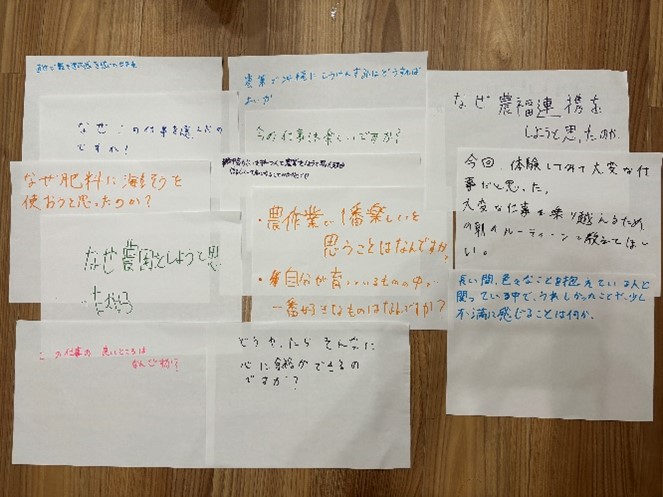 なぜこの仕事を選んだの
ですか！
なぜ肥料に海そうを
使おうと思ったのか？
なぜ農園をしようと思
ったのか
この仕事の良いところは
なんですか？
農業で
どうすれば
今の仕事は楽しいですか？
・農作業で1番楽しいと
思うことはなんですか。
・自分が育てているものの中で
一番好きなものはなんですか？
どうやったらそんなに
心に余裕ができるの
ですか？
なぜ農福連携を
しようと思ったのか
今回、体験してみて大変な仕
事だと思った。
大変な仕事を乗り越えるため
の朝のルーティーンを教えてほし
い。
長い間、色々なことを抱えている人と
関っている中で、うれしかったことや、少し
不満に感じることは何か。